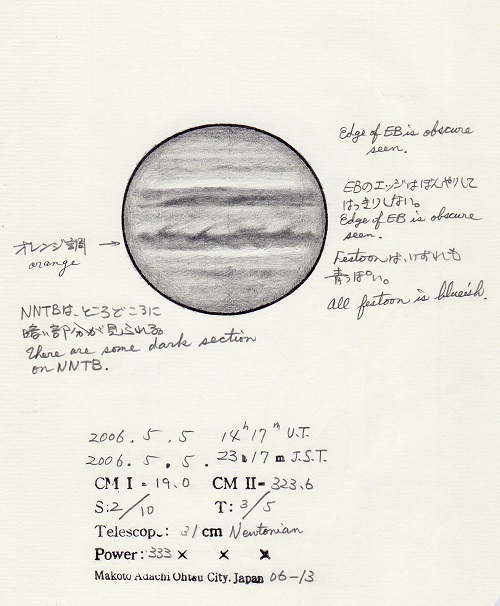 Edge of EB is obscure
seen.
EBのエッジはぼんやりして
はっきりしない。
Edge of EB is obscure
seen.
Festoonは、いずれも
青っぽい。
All festoon is blueish.
オレンジ調 →
orange
NNTBは、ところどころに
暗い部分が見られる。
There are some dark section
on NNTB.
2006. 5. 5 14h 17m U.T.
2006. 5. 5. 23h 17m J.S.T.
CM I = 19.0 CM II = 323.6
S: 2/10 T: 3/5
Telescope: 31 cm Newtonian
Power: 333 × × ×
Makoto Adachi Ohtsu City. Japan 06-13